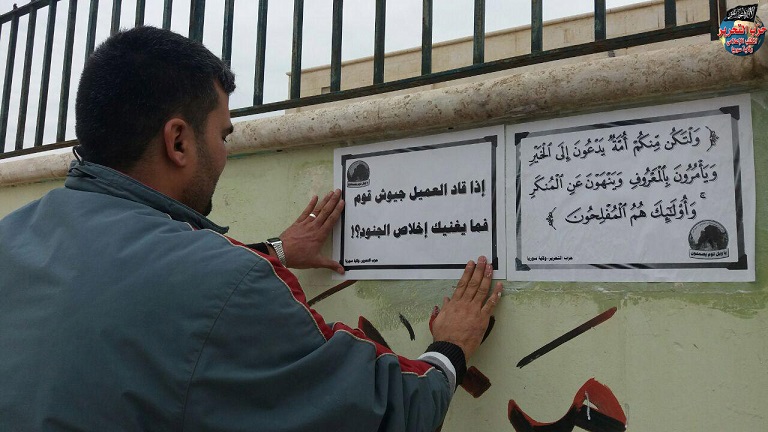 حزب التحرير
إذا قاد العميل جيوش قوم
فما يغنيك إخلاص الجنود؟!
حزب التحرير- ولاية سوريا
﴿ وَلْتَكُن مِّنكُمْ أُمَّةٌ يَدْعُونَ إِلَى الْخَيْرِ
وَيَأْمُرُونَ بِالْمَعْرُوفِ وَيَنْهَوْنَ عَنِ الْمُنكَرِ
ۚ وَأُوْلَٰئِكَ هُمُ الْمُفْلِحُونَ ﴾
حزب التحرير- ولاية سوريا